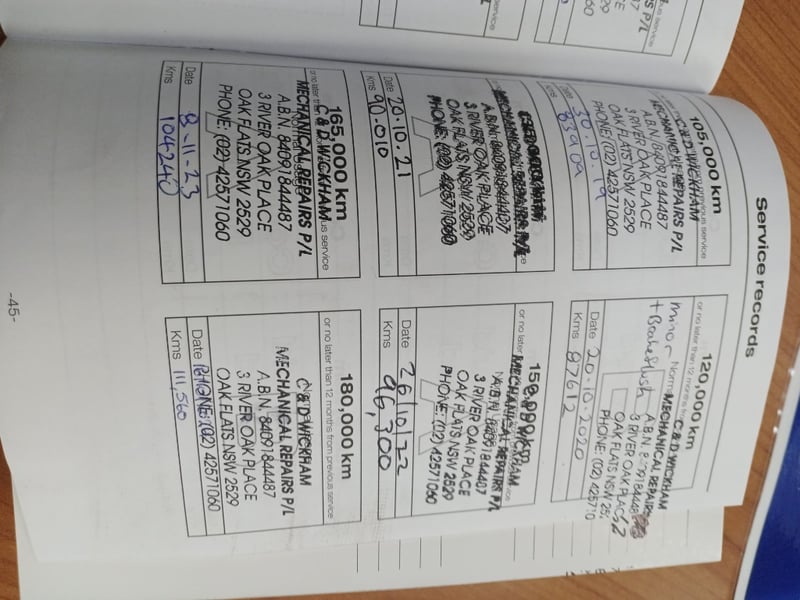 Service records
105,000 km
previous service
C & D WICKHAM
MECHANICAL REPAIRS P/L
A.B.N. 84091844487
3 RIVER OAK PLACE
OAK FLATS NSW 2529
PHONE: (02) 42571060
Date 30.10.19
Kms
120,000 km
or no later than 12 months from
minor
+ Brake flush
C & D WICKHAM
MECHANICAL REPAIRS
A.B.N.
3 RIVER OAK PLAC
OAK FLATS NSW 252
PHONE: (02) 425710
Date 20.10.2020
Kms 87612
MECHANICAL REPAIRS P/L
A.B.N.
3 RIVER OAK PLACE
OAK FLATS NSW 2529
PHONE: (02) 42571060
Date 20.10.21
Kms 90.010
150,000 km
or no later
C & D WICKHAM
MECHANICAL REPAIRS P/L
A.B.N. 84091844487
3 RIVER OAK PLACE
OAK FLATS NSW 2529
PHONE: (02) 42571060
Date 26/10/22
Kms 96,300
165,000 km
or no later than
us service
C & D WICKHAM
MECHANICAL REPAIRS P/L
A.B.N. 84091844487
3 RIVER OAK PLACE
OAK FLATS NSW 2529
PHONE: (02) 42571060
Date 8-11-23
Kms 104240
180,000 km
or no later than 12 months from previous service
C & D WICKHAM
MECHANICAL REPAIRS P/L
A.B.N. 84091844487
3 RIVER OAK PLACE
OAK FLATS NSW 2529
PHONE: (02) 42571060
Date
Kms 111,560
-45-